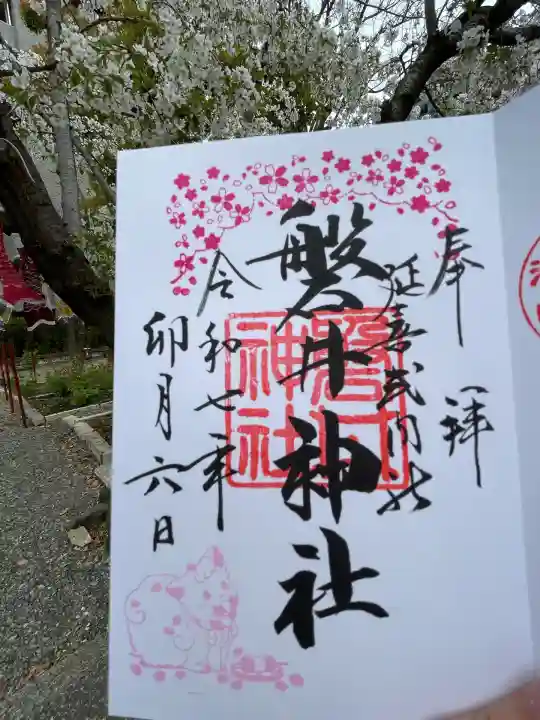 奉拝
延喜式内社
磐井神社
令和七年
卯月六日
磐井
神社